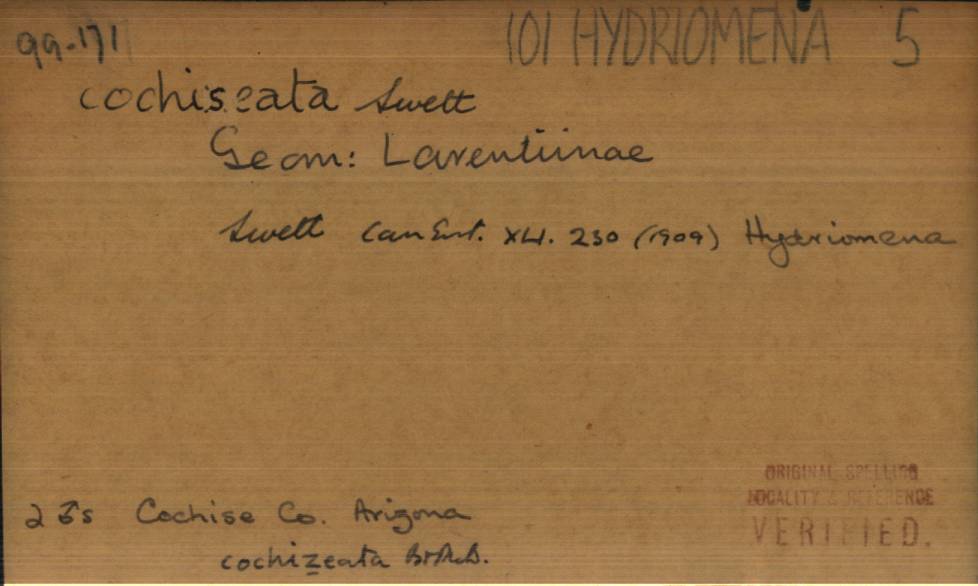 99-171 101 HYDRIOMENA 5
cochiseata Swett
Geom: Larentiinae
Swett Can Ent. XLI. 230 (1909) Hydriomena
ORIGINAL SPELLING
LOCALITY & REFERENCE
VERIFIED.
2 ♂s Cochise Co. Arizona
cochizeata